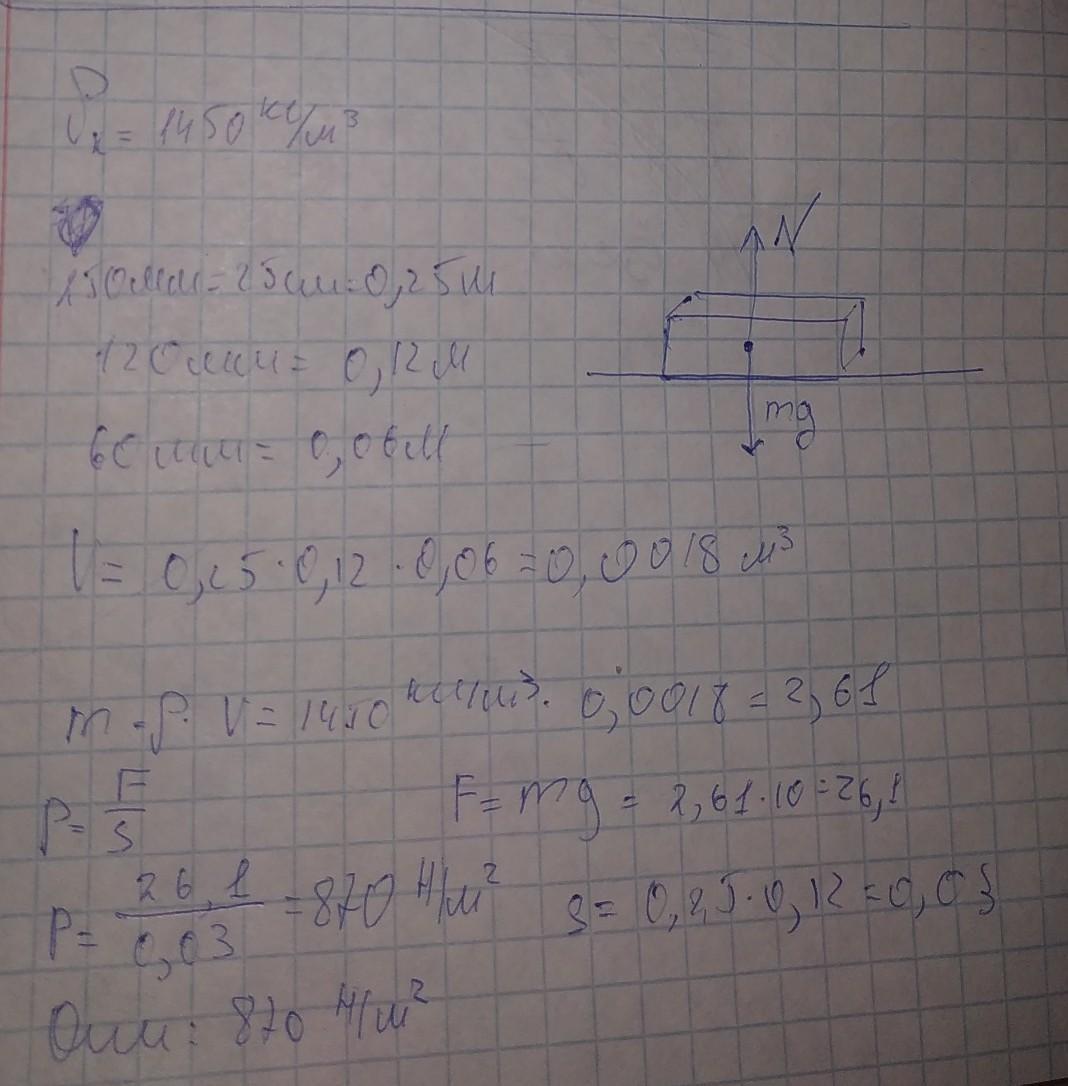 = 1450 кг/м³
250мм=25см=0,25м
N
120мм = 0,12м
mg
60мм = 0,06м
V = 0,25·0,12·0,06=0,0018 м³
m=ρ·V=1450 кг/м³·0,0018=2,61
P=F/S F=mg=2,61·10=26,1
P=26,1/0,03=870 Н/м² S=0,25·0,12=0,03
Отв: 870 Н/м²